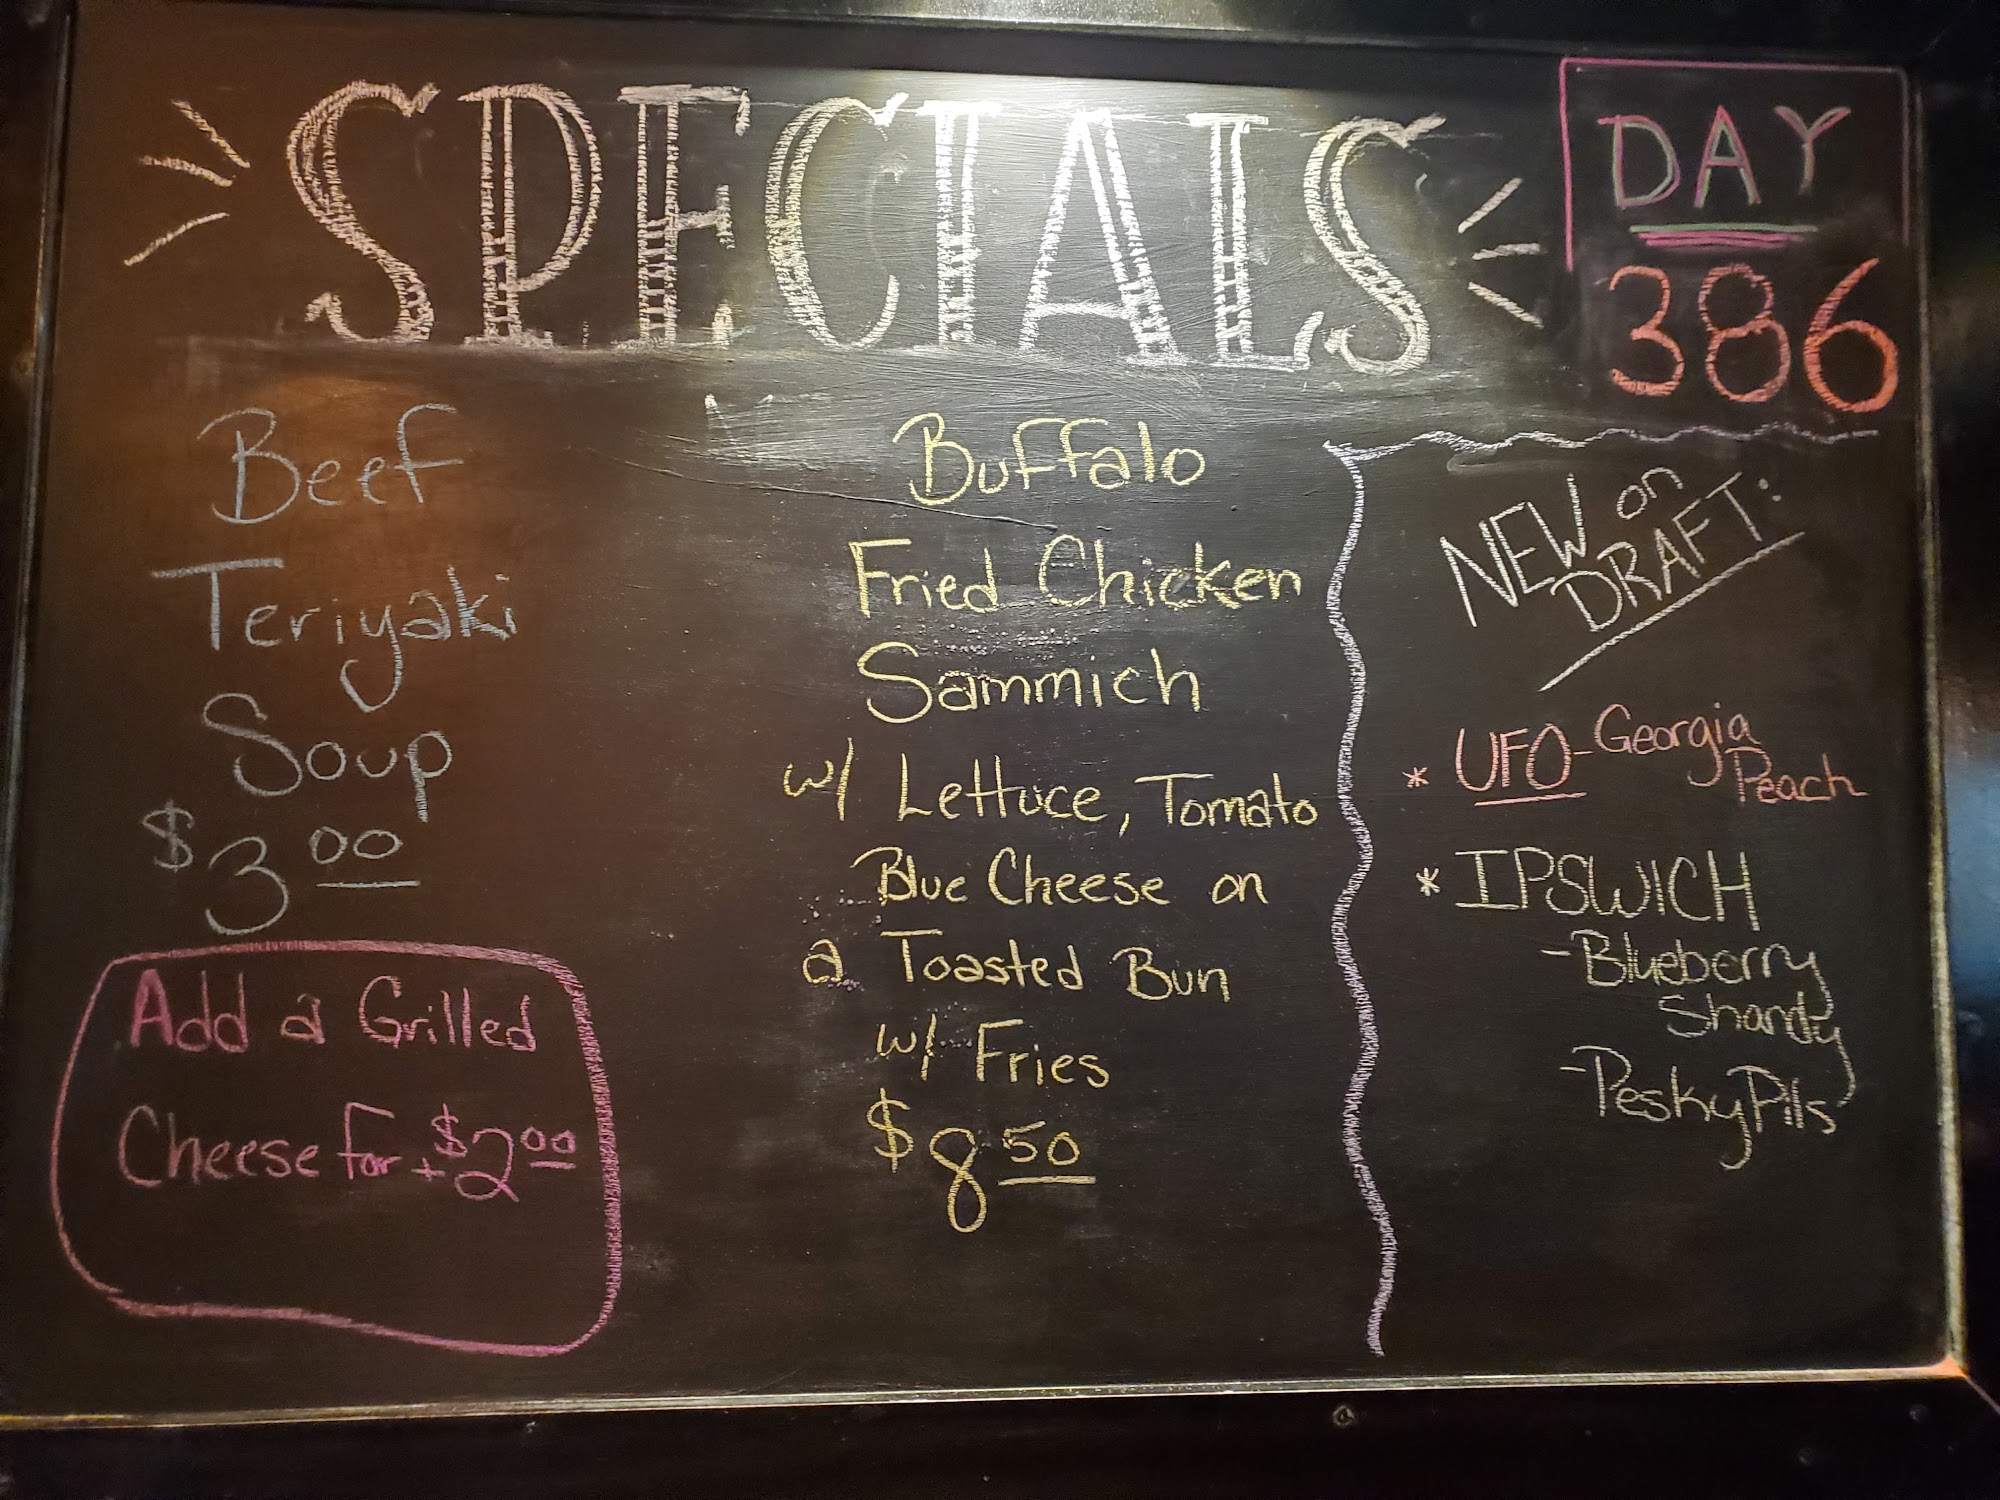 SPECIALS
DAY
386
Beef
Teriyaki
Soup
$3.00
Add a Grilled
Cheese for +$2.00
Buffalo
Fried Chicken
Sammich
w/ Lettuce, Tomato
Blue Cheese on
a Toasted Bun
w/ Fries
$8.50
NEW on
DRAFT:
* UFO-Georgia
Peach
* IPSWICH
-Blueberry
Shandy
-Pesky Pils